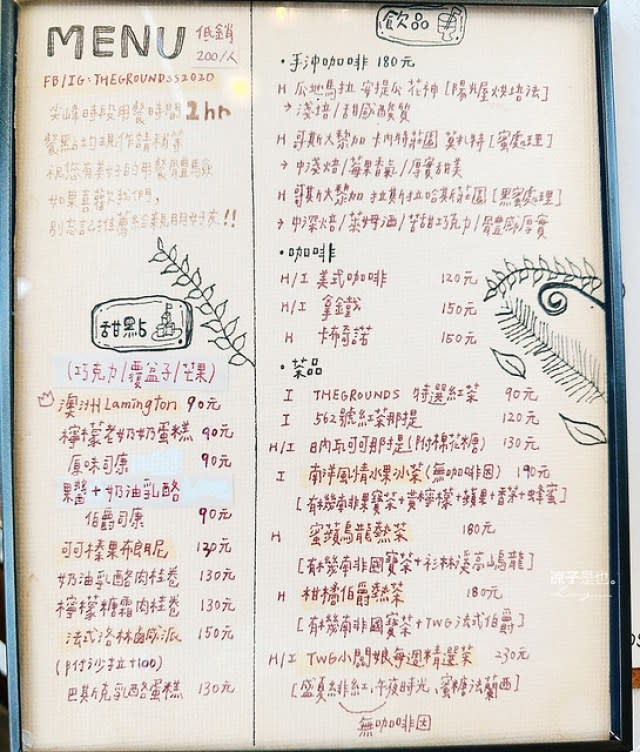 MENU 低銷
200/人
FB/IG:THEGROUNDSS2020
尖峰時段用餐時間2hr
餐點均現作請稍等
祝您有美好的用餐體驗
如果喜歡我們,
別忘記推薦給親朋好友!!
甜點
(巧克力/覆盆子/芒果)
澳洲Lamington 90元
檸檬老奶奶蛋糕 90元
原味司康 90元
果醬+奶油乳酪
伯爵司康 90元
可可榛果布朗尼 130元
奶油乳酪肉桂卷 130元
檸檬糖霜肉桂卷 130元
法式洛林鹹派 150元
(附沙拉+100)
巴斯克乳酪蛋糕 130元
飲品
・手沖咖啡 180元
H 瓜地馬拉 蜜提瓜 花神[陽光屋烘培法]
→淺培/甜感酸質
H 哥斯大黎加 卡內特莊園 莫札特[蜜處理]
→中淺焙/莓果香氣/厚實甜美
H 哥斯大黎加 拉斯拉哈斯莊園[黑蜜處理]
→中深焙/萊姆酒/苦甜巧克力/體感厚實
・咖啡
H/I 美式咖啡 120元
H/I 拿鐵 150元
H 卡布奇諾 150元
・茶品
I THEGROUNDS 特選紅茶 90元
I 562號紅茶那提 120元
H/I B內瓦可可那提(附棉花糖) 130元
I 南洋風情水果冰茶(無咖啡因) 190元
[有機南非果寶茶+黃檸檬+蘋果+香茅+蜂蜜]
H 蜜蘋烏龍熱茶 180元
[有機南非國寶茶+杉林溪高山烏龍]
H 柑橘伯爵熱茶 180元
[有機南非國寶茶+TWG法式伯爵]
H/I TWG小闆娘每週精選茶 230元
[盛夏緋紅、午後時光、蜜糖法蘭西]
無咖啡因
凍子是也。